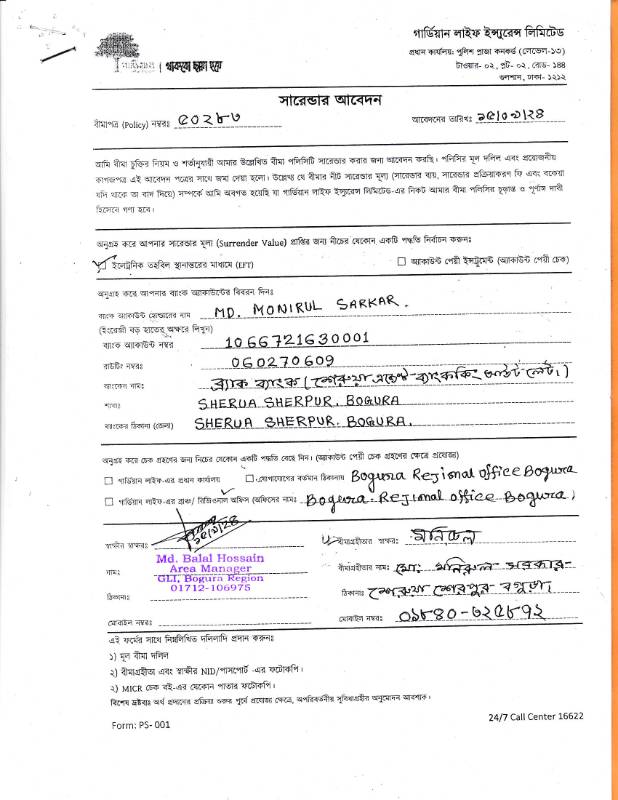 গার্ডিয়ান | থাকবো ছায়া হয়ে
গার্ডিয়ান লাইফ ইন্স্যুরেন্স লিমিটেড
প্রধান কার্যালয়: পুলিশ প্লাজা কনকর্ড (লেভেল-১৩)
টাওয়ার- ০২, প্লট- ০২, রোড- ১৪৪
গুলশান, ঢাকা- ১২১২
সারেন্ডার আবেদন
বীমাপত্র (Policy) নম্বরঃ ৫০২৮৬
আবেদনের তারিখঃ
আমি বীমা চুক্তির নিয়ম ও শর্তানুযায়ী আমার উল্লেখিত বীমা পলিসিটি সারেন্ডার করার জন্য আবেদন করছি। পলিসির মূল দলিল এবং প্রয়োজনীয়
কাগজপত্র এই আবেদন পত্রের সাথে জমা দেয়া হলো। উল্লেখ্য যে বীমার নীট সারেন্ডার মূল্য (সারেন্ডার ব্যয়, সারেন্ডার প্রক্রিয়াকরণ ফি এবং বকেয়া
যদি থাকে তা বাদ দিয়ে) সম্পর্কে আমি অবগত হয়েছি যা গার্ডিয়ান লাইফ ইন্স্যুরেন্স লিমিটেড-এর নিকট আমার বীমা পলিসির চূড়ান্ত ও পূর্ণাঙ্গ দাবী
হিসেবে গণ্য হবে।
অনুগ্রহ করে আপনার সারেন্ডার মূল্য (Surrender Value) প্রাপ্তির জন্য নীচের যেকোন একটি পদ্ধতি নির্বাচন করুন:
ইলেক্ট্রনিক তহবিল স্থানান্তরের মাধ্যমে (EFT)
অ্যাকাউন্ট পেয়ী ইন্সট্রুমেন্ট (অ্যাকাউন্ট পেয়ী চেক)
অনুগ্রহ করে আপনার ব্যাংক অ্যাকাউন্টের বিবরন দিনঃ
ব্যাংক অ্যাকাউন্ট হোল্ডারের নাম MD. MONIRUL SARKAR.
(ইংরেজী বড় হাতের অক্ষরে লিখুন)
ব্যাংক অ্যাকাউন্ট নম্বর 1066721630001
রাউটিং নম্বরঃ 060270609
ব্যাংকের নাম: ব্র্যাক ব্যাংক (শেরুয়া এজেন্ট-ব্যাংকিং আউট লেট।)
শাখাঃ SHERUA SHERPUR. BOGURA
ব্যাংকের ঠিকানা (জেলা) SHERUA SHERPUR. BOGURA.
অনুগ্রহ করে চেক গ্রহণের জন্য নিচের যেকোন একটি পদ্ধতি বেছে নিন। (অ্যাকাউন্ট পেয়ী চেক গ্রহণের ক্ষেত্রে প্রযোজ্য)
গার্ডিয়ান লাইফ-এর প্রধান কার্যালয়
যোগাযোগের বর্তমান ঠিকানায় Bogura Rejional office Bogura
গার্ডিয়ান লাইফ-এর ব্রাঞ্চ/ রিজিওনাল অফিস (অফিসের নামঃ Bogura. Rejional office Bogura)
স্বাক্ষীর স্বাক্ষরঃ
বীমাগ্রহীতার স্বাক্ষর: মনিরুল
Md. Balal Hossain
Area Manager
GLI, Bogura Region
01712-106975
নাম:
বীমাগ্রহীতার নামঃ মোঃ মনিরুল সরকার-
ঠিকানাঃ
ঠিকানাঃ শেরুয়া শেরপুর- বগুড়া,
মোবাইল নম্বরঃ
মোবাইল নম্বরঃ ০১৮৪০-৬২৫৮৭২
এই ফর্মের সাথে নিম্নলিখিত দলিলাদি প্রদান করুনঃ
১) মূল বীমা দলিল
২) বীমাগ্রহীতা এবং স্বাক্ষীর NID/পাসপোর্ট -এর ফটোকপি।
২) MICR চেক বই-এর যেকোন পাতার ফটোকপি।
বিশেষ দ্রষ্টব্যঃ অর্থ প্রদানের প্রক্রিয়া শুরুর পূর্বে প্রযোজ্য ক্ষেত্রে, অপরিবর্তনীয় সুবিধাগ্রহীর অনুমোদন আবশ্যক।
Form: PS- 001
24/7 Call Center 16622